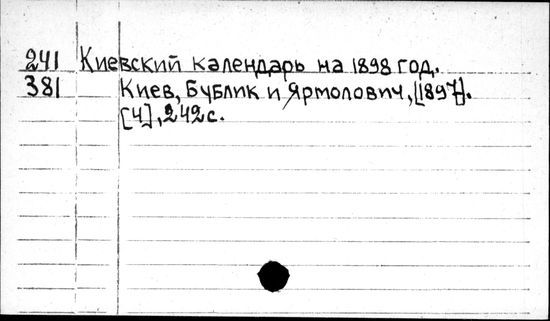 241 Киевский календарь на 1898 год.
381 Киев, Бублик и Ярмолович, [1897].
[4], 242с.